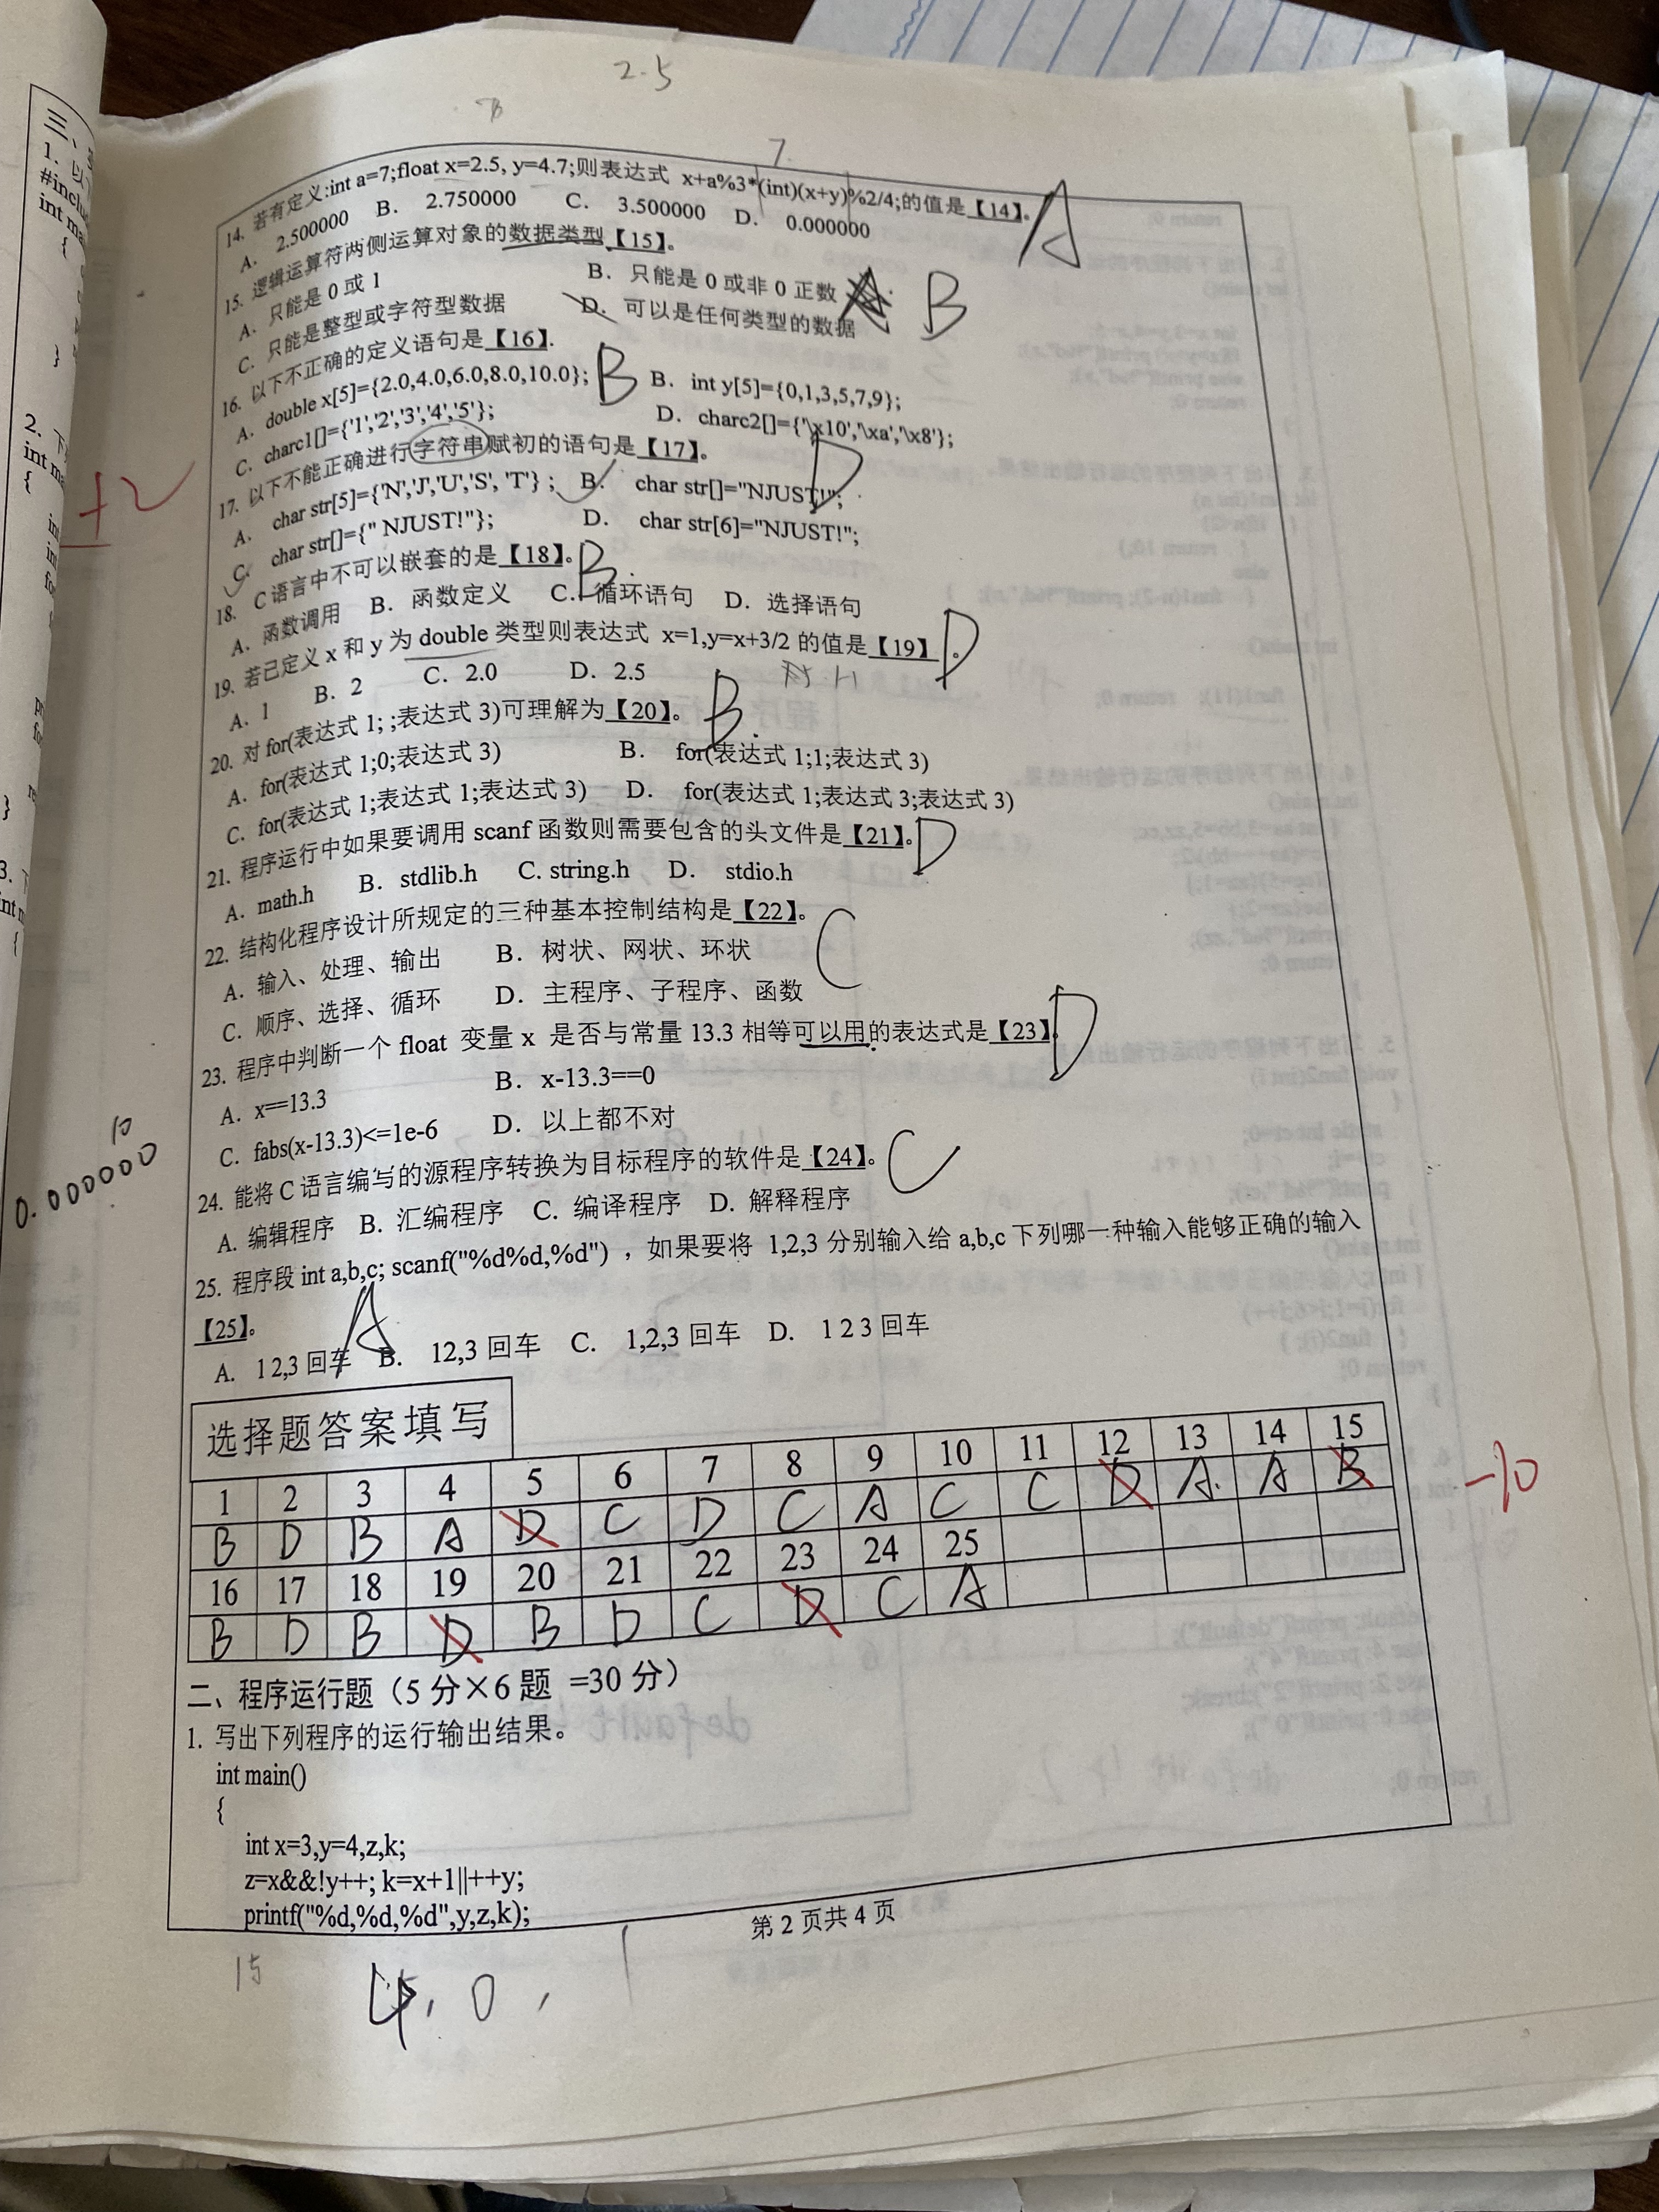 2.5
7
14. 若有定义:int a=7;float x=2.5, y=4.7;则表达式 x+a%3*(int)(x+y)%2/4;的值是【14】。 A
A. 2.500000 B. 2.750000 C. 3.500000 D. 0.000000
15. 逻辑运算符两侧运算对象的数据类型【15】。
A. 只能是 0 或 1 B. 只能是 0 或非 0 正数 B
C. 只能是整型或字符型数据 D. 可以是任何类型的数据
16. 以下不正确的定义语句是【16】.
A. double x[5]={2.0,4.0,6.0,8.0,10.0}; B B. int y[5]={0,1,3,5,7,9};
C. charc1[]={'1','2','3','4','5'}; D. charc2[]={'\x10','\xa','\x8'};
17. 以下不能正确进行字符串赋初的语句是【17】。 D
A. char str[5]={'N','J','U','S', 'T'} ; B. char str[]="NJUST!";
C. char str[]={" NJUST!"}; D. char str[6]="NJUST!";
18. C 语言中不可以嵌套的是【18】。 B
A. 函数调用 B. 函数定义 C. 循环语句 D. 选择语句
19. 若已定义 x 和 y 为 double 类型则表达式 x=1,y=x+3/2 的值是【19】。 D
A. 1 B. 2 C. 2.0 D. 2.5
20. 对 for(表达式 1; ;表达式 3)可理解为【20】。 B
A. for(表达式 1;0;表达式 3) B. for(表达式 1;1;表达式 3)
C. for(表达式 1;表达式 1;表达式 3) D. for(表达式 1;表达式 3;表达式 3)
21. 程序运行中如果要调用 scanf 函数则需要包含的头文件是【21】。 D
A. math.h B. stdlib.h C. string.h D. stdio.h
22. 结构化程序设计所规定的三种基本控制结构是【22】。 C
A. 输入、处理、输出 B. 树状、网状、环状
C. 顺序、选择、循环 D. 主程序、子程序、函数
23. 程序中判断一个 float 变量 x 是否与常量 13.3 相等可以用的表达式是【23】 D
A. x==13.3 B. x-13.3==0
C. fabs(x-13.3)<=1e-6 D. 以上都不对
24. 能将 C 语言编写的源程序转换为目标程序的软件是【24】。 C
A. 编辑程序 B. 汇编程序 C. 编译程序 D. 解释程序
25. 程序段 int a,b,c; scanf("%d%d,%d") ，如果要将 1,2,3 分别输入给 a,b,c 下列哪一种输入能够正确的输入
【25】。 A
A. 1 2,3 回车 B. 12,3 回车 C. 1,2,3 回车 D. 1 2 3 回车
+2
10
0.000000
选择题答案填写
1 2 3 4 5 6 7 8 9 10 11 12 13 14 15
B D B A D C D C A C C D A. A B
-10
16 17 18 19 20 21 22 23 24 25
B D B D B D C D C A
二、程序运行题（5 分×6 题 =30 分）
1. 写出下列程序的运行输出结果。
int main()
{
int x=3,y=4,z,k;
z=x&&!y++; k=x+1||++y;
printf("%d,%d,%d",y,z,k);
第 2 页共 4 页
15
, 0 , 1